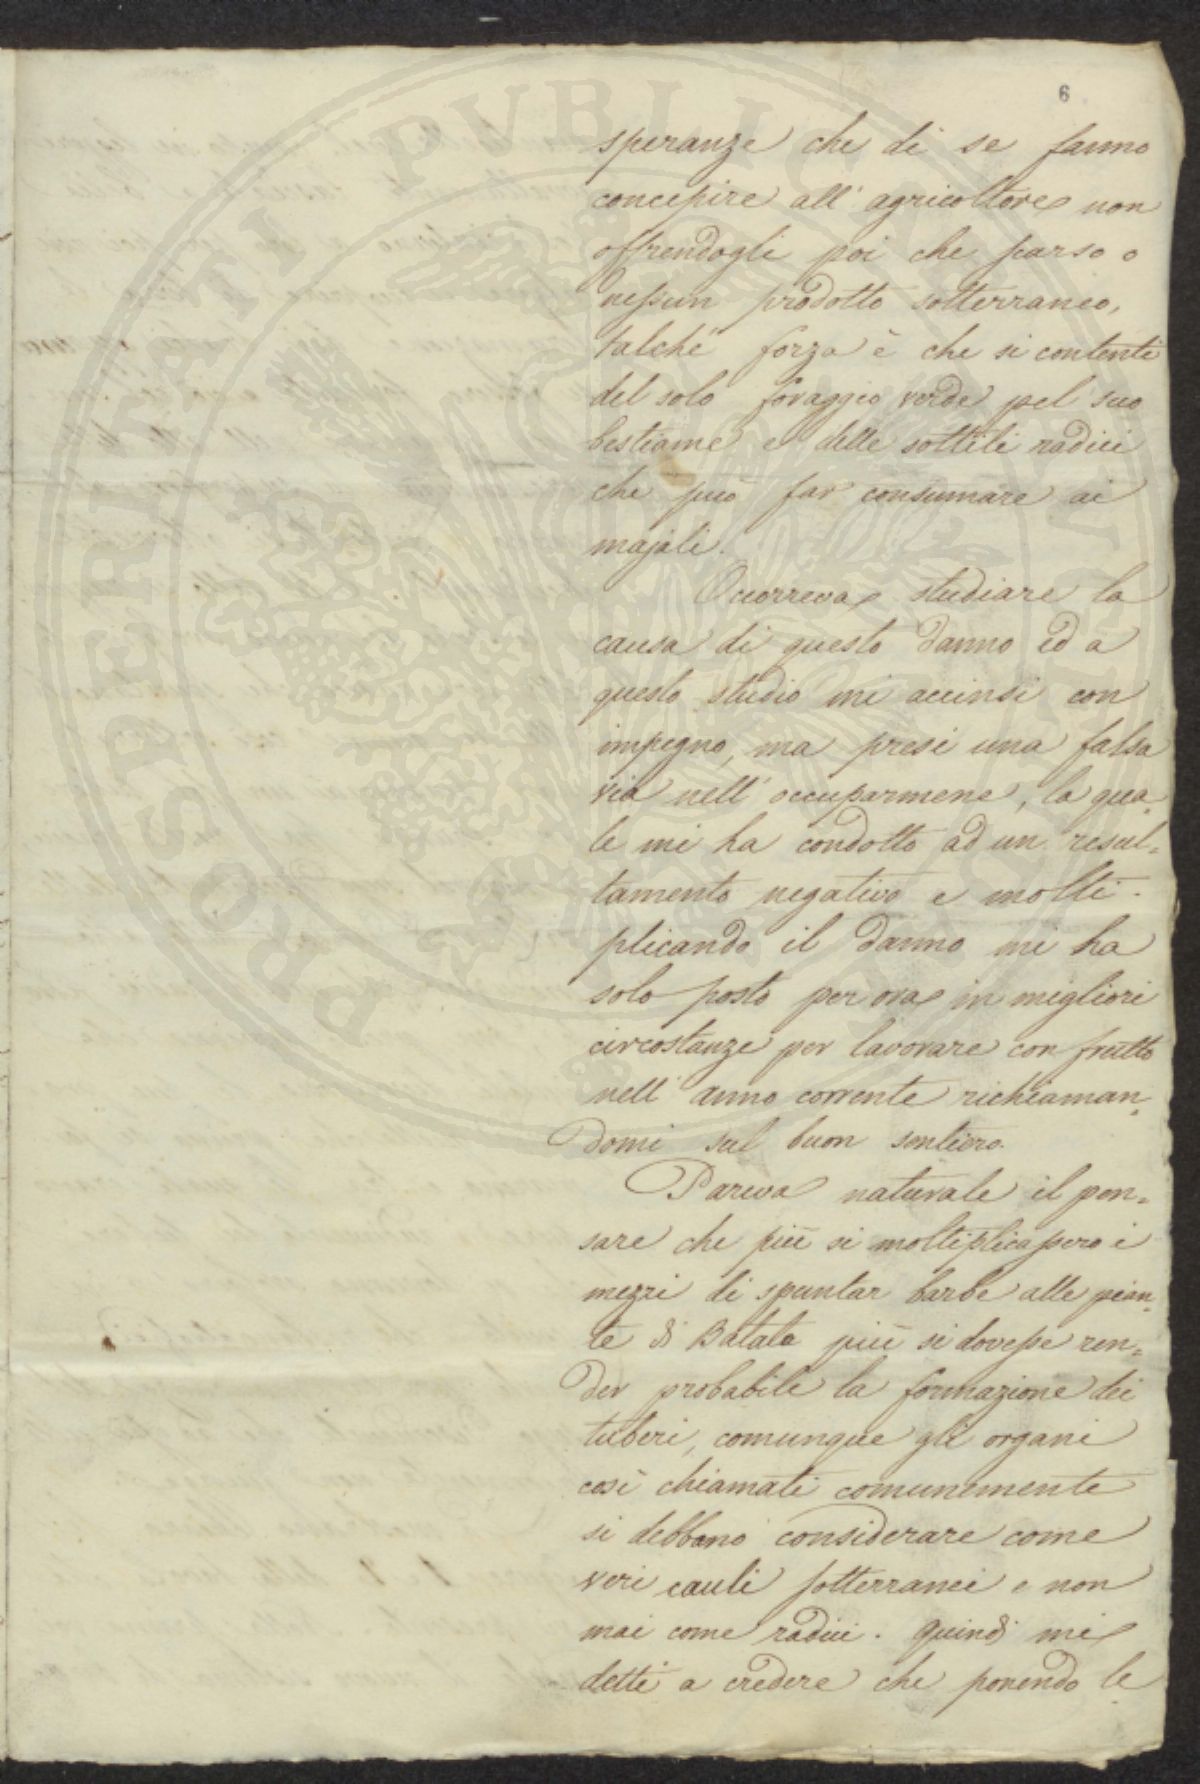 6
speranze che di se fanno
concepire all' agricoltore non
offrendogli poi che scarso o
nessun prodotto sotterraneo,
talché forza è che si contenti
del solo foraggio verde pel suo
bestiame e delle sottili radici
che può far consumare ai
majali.
Occorreva studiare la
causa di questo danno ed a
questo studio mi accinsi con
impegno, ma presi una falsa
via nell' occuparmene, la qua-
le mi ha condotto ad un resul-
tamento negativo e molti-
plicando il danno mi ha
solo posto per ora in migliori
circostanze per lavorare con frutto
nell' anno corrente richiaman-
domi sul buon sentiero.
Pareva naturale il pen-
sare che più si moltiplicassero i
mezzi di spuntar barbe alle pian-
te di Batata più si dovesse ren-
der probabile la formazione dei
tuberi, comunque gli organi
così chiamati comunemente
si debbano considerare come
veri cauli sotterranei e non
mai come radici. Quindi mi
detti a credere che ponendo le
PROSPERITATI PUBLICAE